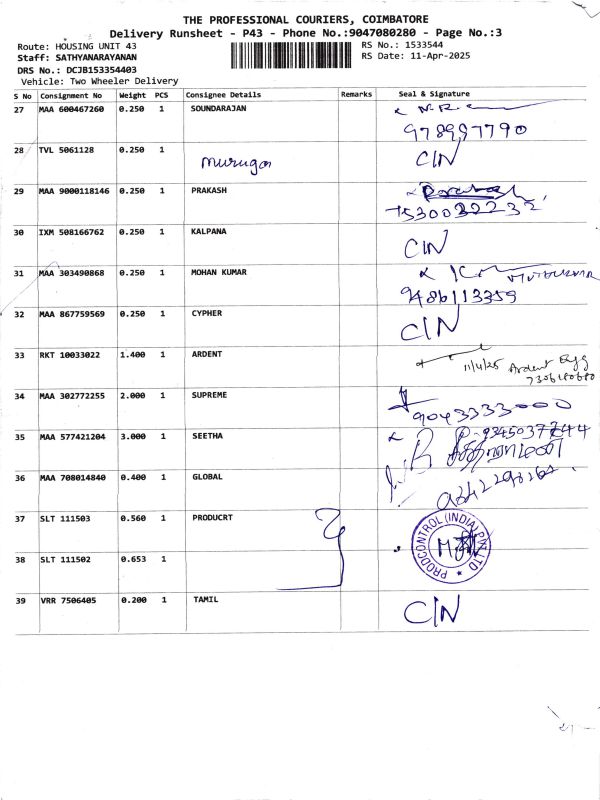 THE PROFESSIONAL COURIERS, COIMBATORE
Delivery Runsheet - P43 - Phone No.:9047080280 - Page No.:3
Route: HOUSING UNIT 43
RS No.: 1533544
Staff: SATHYANARAYANAN
RS Date: 11-Apr-2025
DRS No.: DCJB153354403
Vehicle: Two Wheeler Delivery
S No Consignment No Weight PCS Consignee Details Remarks Seal & Signature
27 MAA 600467260 0.250 1 SOUNDARAJAN
28 TVL 5061128 0.250 1 Murugan CIN
29 MAA 9000118146 0.250 1 PRAKASH
30 IXM 508166762 0.250 1 KALPANA CIN
31 MAA 303490868 0.250 1 MOHAN KUMAR
9486113359
32 MAA 867759569 0.250 1 CYPHER CIN
33 RKT 10033022 1.400 1 ARDENT 11/4/25 Ardent Egg
7306180680
34 MAA 302772255 2.000 1 SUPREME
9043333000
35 MAA 577421204 3.000 1 SEETHA
36 MAA 708014840 0.400 1 GLOBAL
37 SLT 111503 0.560 1 PRODUCRT PRODCONTROL (INDIA) PVT. LTD
38 SLT 111502 0.653 1
39 VRR 7506405 0.200 1 TAMIL CIN